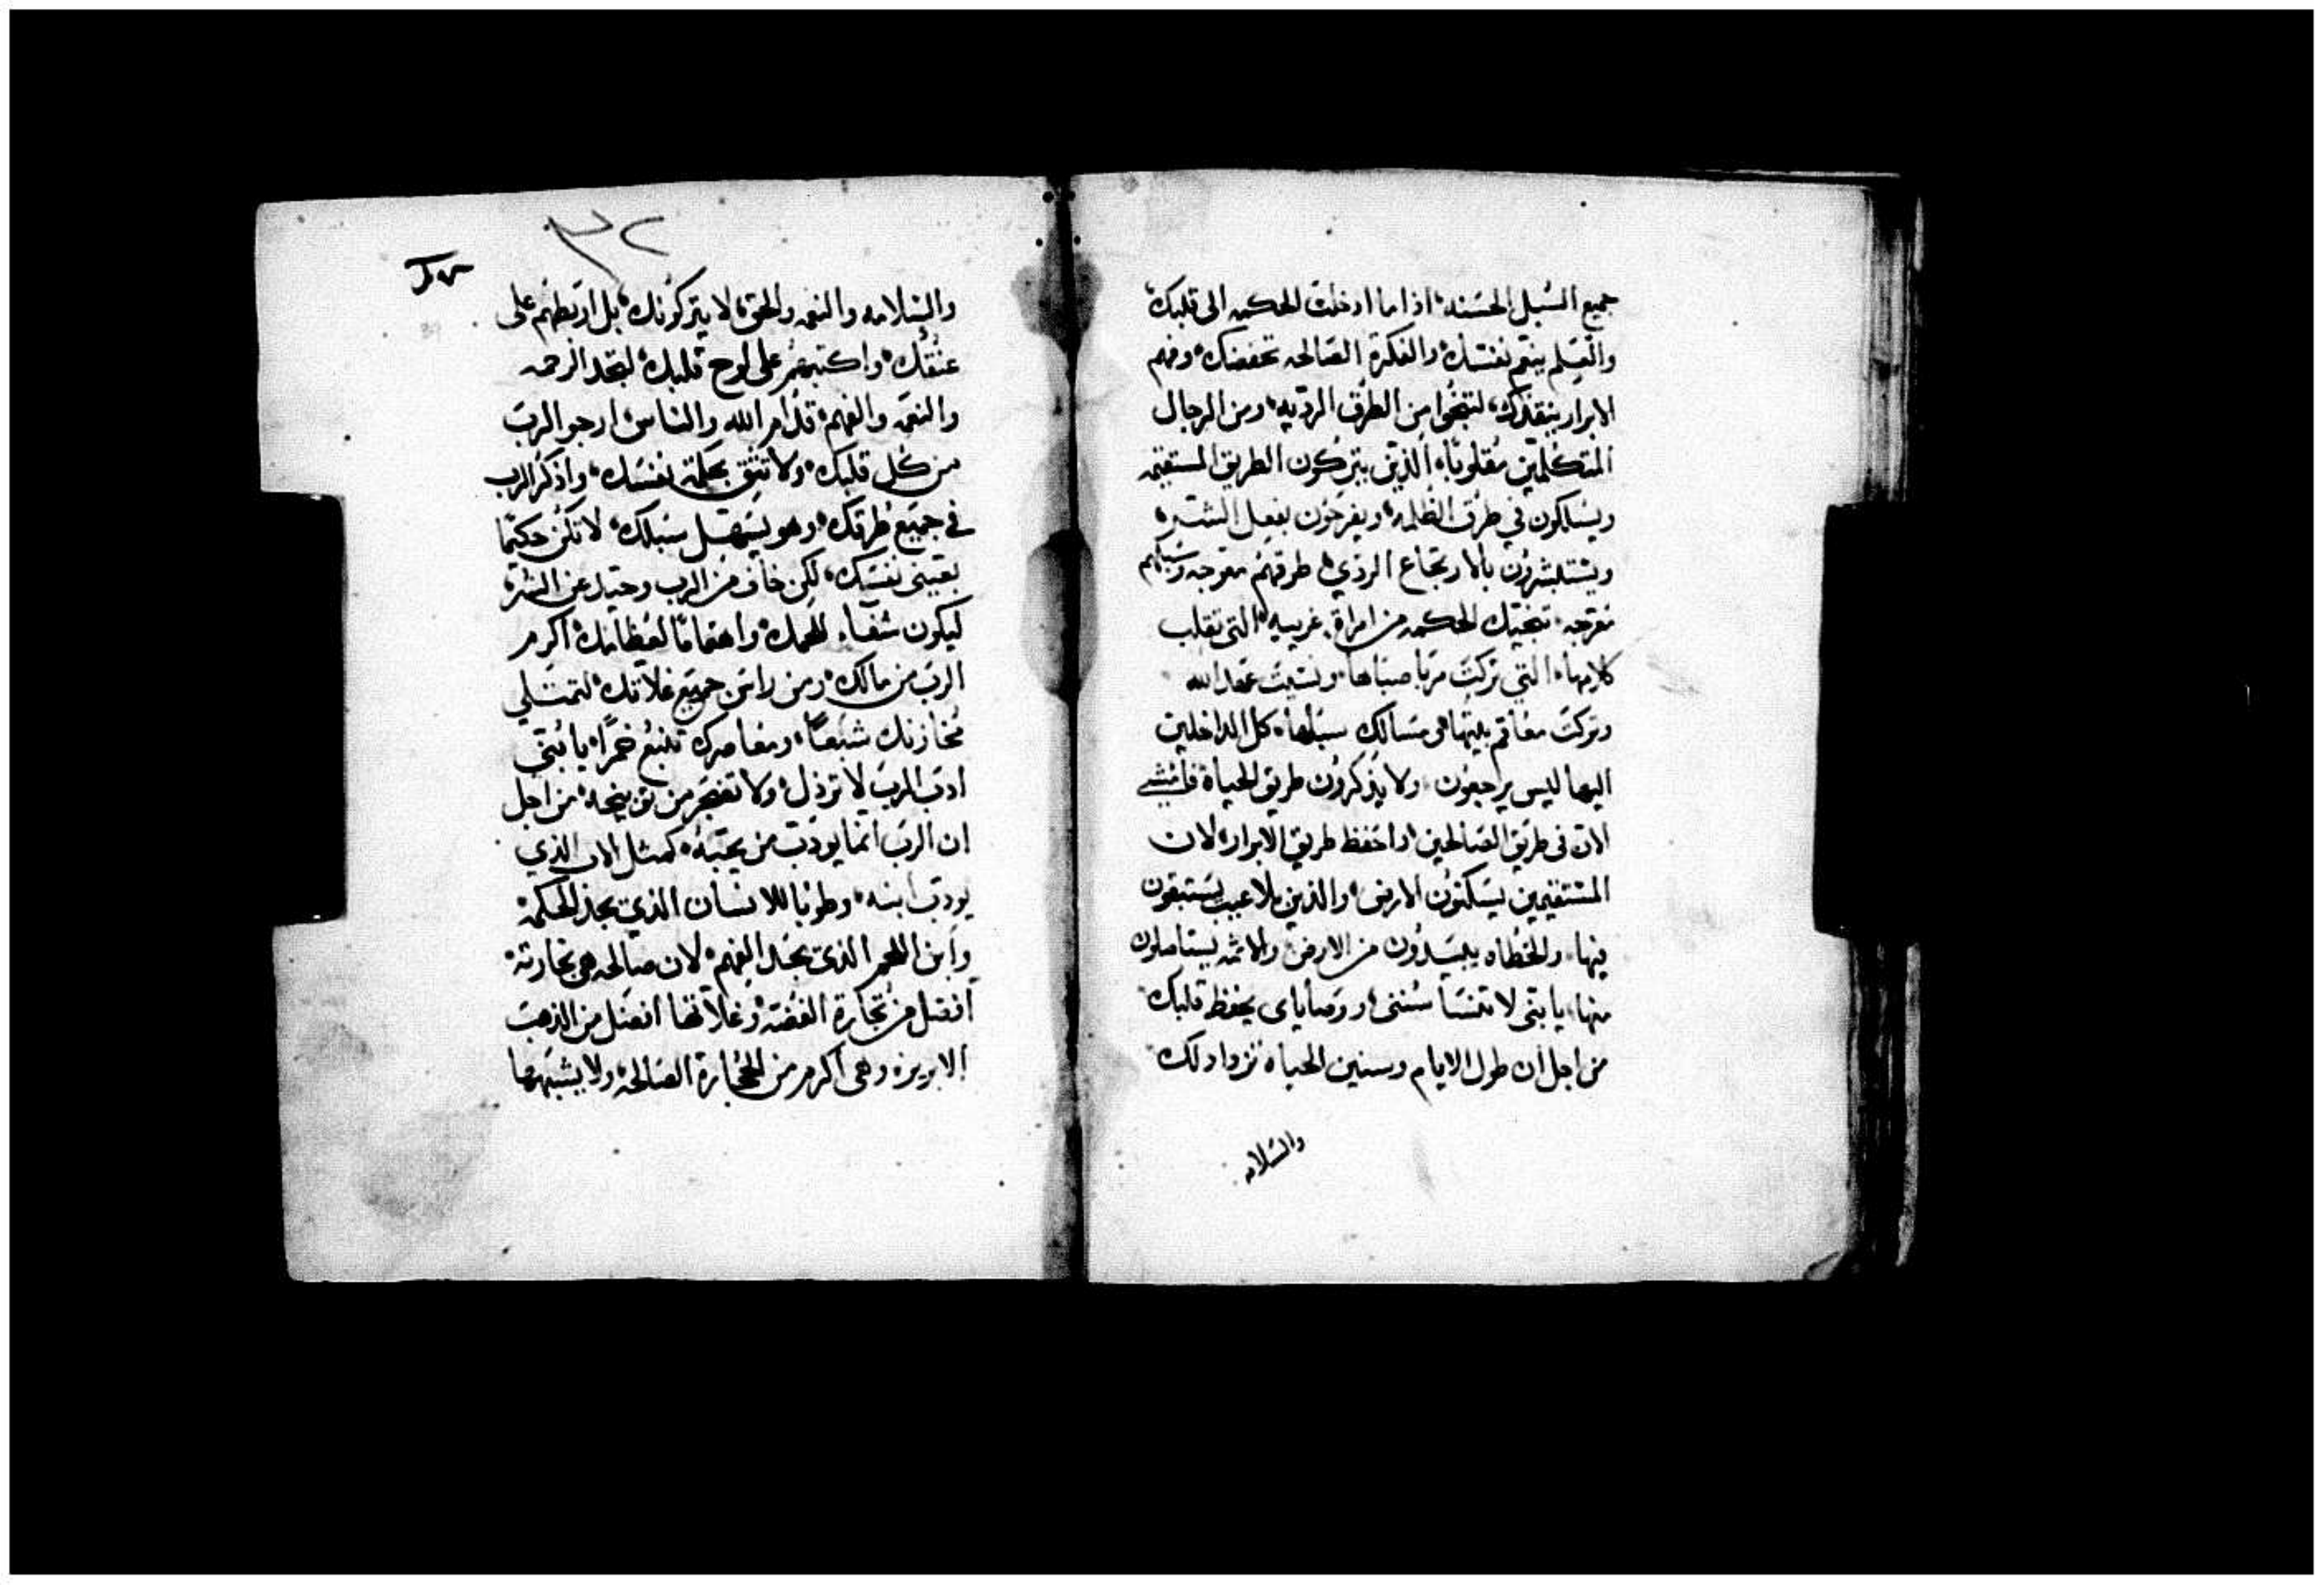 جميع السُبل الحسَنه، اذا ما ادخلت الحكمه الى قلبك،
والعِلم ينعّم نفسَك، والفكرة الصَالحه تحفضك، وفهم
الابرار ينقذك، لتنجُوا من الطرق الرديه، ومن الرجال
المتكلمين مقلوبًا، الذين يتركون الطريق المستقيمه
ويسَلكون في طرق الظلمه، ويفرحون بفعل الشر،
ويستبشرون بالارتجاع الردي، طرقهم معوجه وسبلهم
معوجه، تنجيك الحكمه من امراة غريبه، التي تقلب
كلامها، التي تركت مربا صباها، ونسَيت عهد الله
وتركت معاقم بيتها في مسَالك سبلها، كل الداخلين
اليها ليس يرجعون، ولا يذكرون طريق الحياة فامشي
الان في طريق الصَالحين، واحفظ طريق الابرار، لان
المستقيمين يسَكنون الارض، والذين بلا عيب يستبقون
فيها، والخطاه يبيدون من الارض، والاثمه يستاصلون
منها، يا بني لا تنسَا سُنني، ووصاياى يحفظ قلبك
من اجل ان طول الايام وسنين الحياه تزداد لك
والسَلامه
٣٢
والسَلامه والنعمه والحق، لا يتركونك، بل اربطهم على
عنُقك، واكتبهم على لوح قلبك، لتجد الرحمه
والنعمه والفهم، قدام الله والناس، ارجو الرب
من كل قلبك، ولا تثق بحكمة نفسَك، واذكر الرب
في جميع طرقك، وهو يسَهل سبلك، لا تكن حكيمًا
بعيني نفسَك، لكن خاف من الرب وحيد عن الشر،
ليكون شفآء للحمك، واهتمامًا لعظامك، اكرم
الرب من مالك، ومن راس جميع غلاتك، لتمتلي
مخازنك شبعًا، ومعاصرك تنبع خمرًا، يا بُني
ادب الرب لا ترذل، ولا تضجر من توبيخه، من اجل
ان الرب انما يودب من يحبّه، كمثل الاب الذي
يودب ابنه، وطوبا للانسان الذي يجد الحكمة
وابن اللحم الذي يجد الفهم، لان صالحه هي تجارته،
افضل من تجارة الفضة، وغلاتها افضل من الذهب
الابريز، وهي اكرم من الحجارة الصَالحه، ولا يشبهها